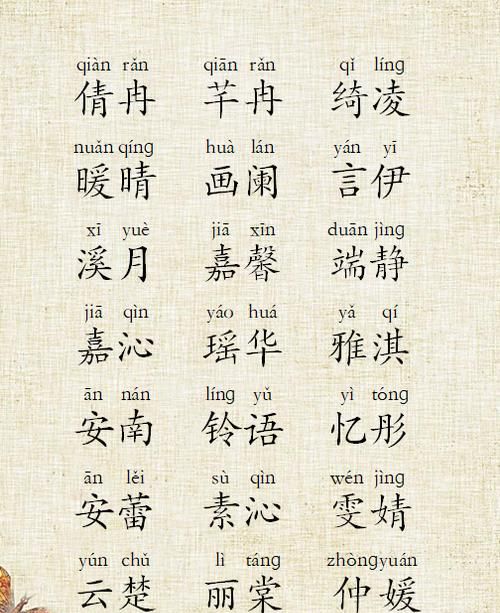 qiàn rǎn qiān rǎn qǐ líng
倩冉 芊冉 绮凌
nuǎn qíng huà lán yán yī
暖晴 画阑 言伊
xī yuè jiā xīn duān jìng
溪月 嘉馨 端静
jiā qìn yáo huá yǎ qí
嘉沁 瑶华 雅淇
ān nán líng yǔ yì tóng
安南 铃语 忆彤
ān lěi sù qìn wén jìng
安蕾 素沁 雯婧
yún chǔ lì táng zhòng yuán
云楚 丽棠 仲媛